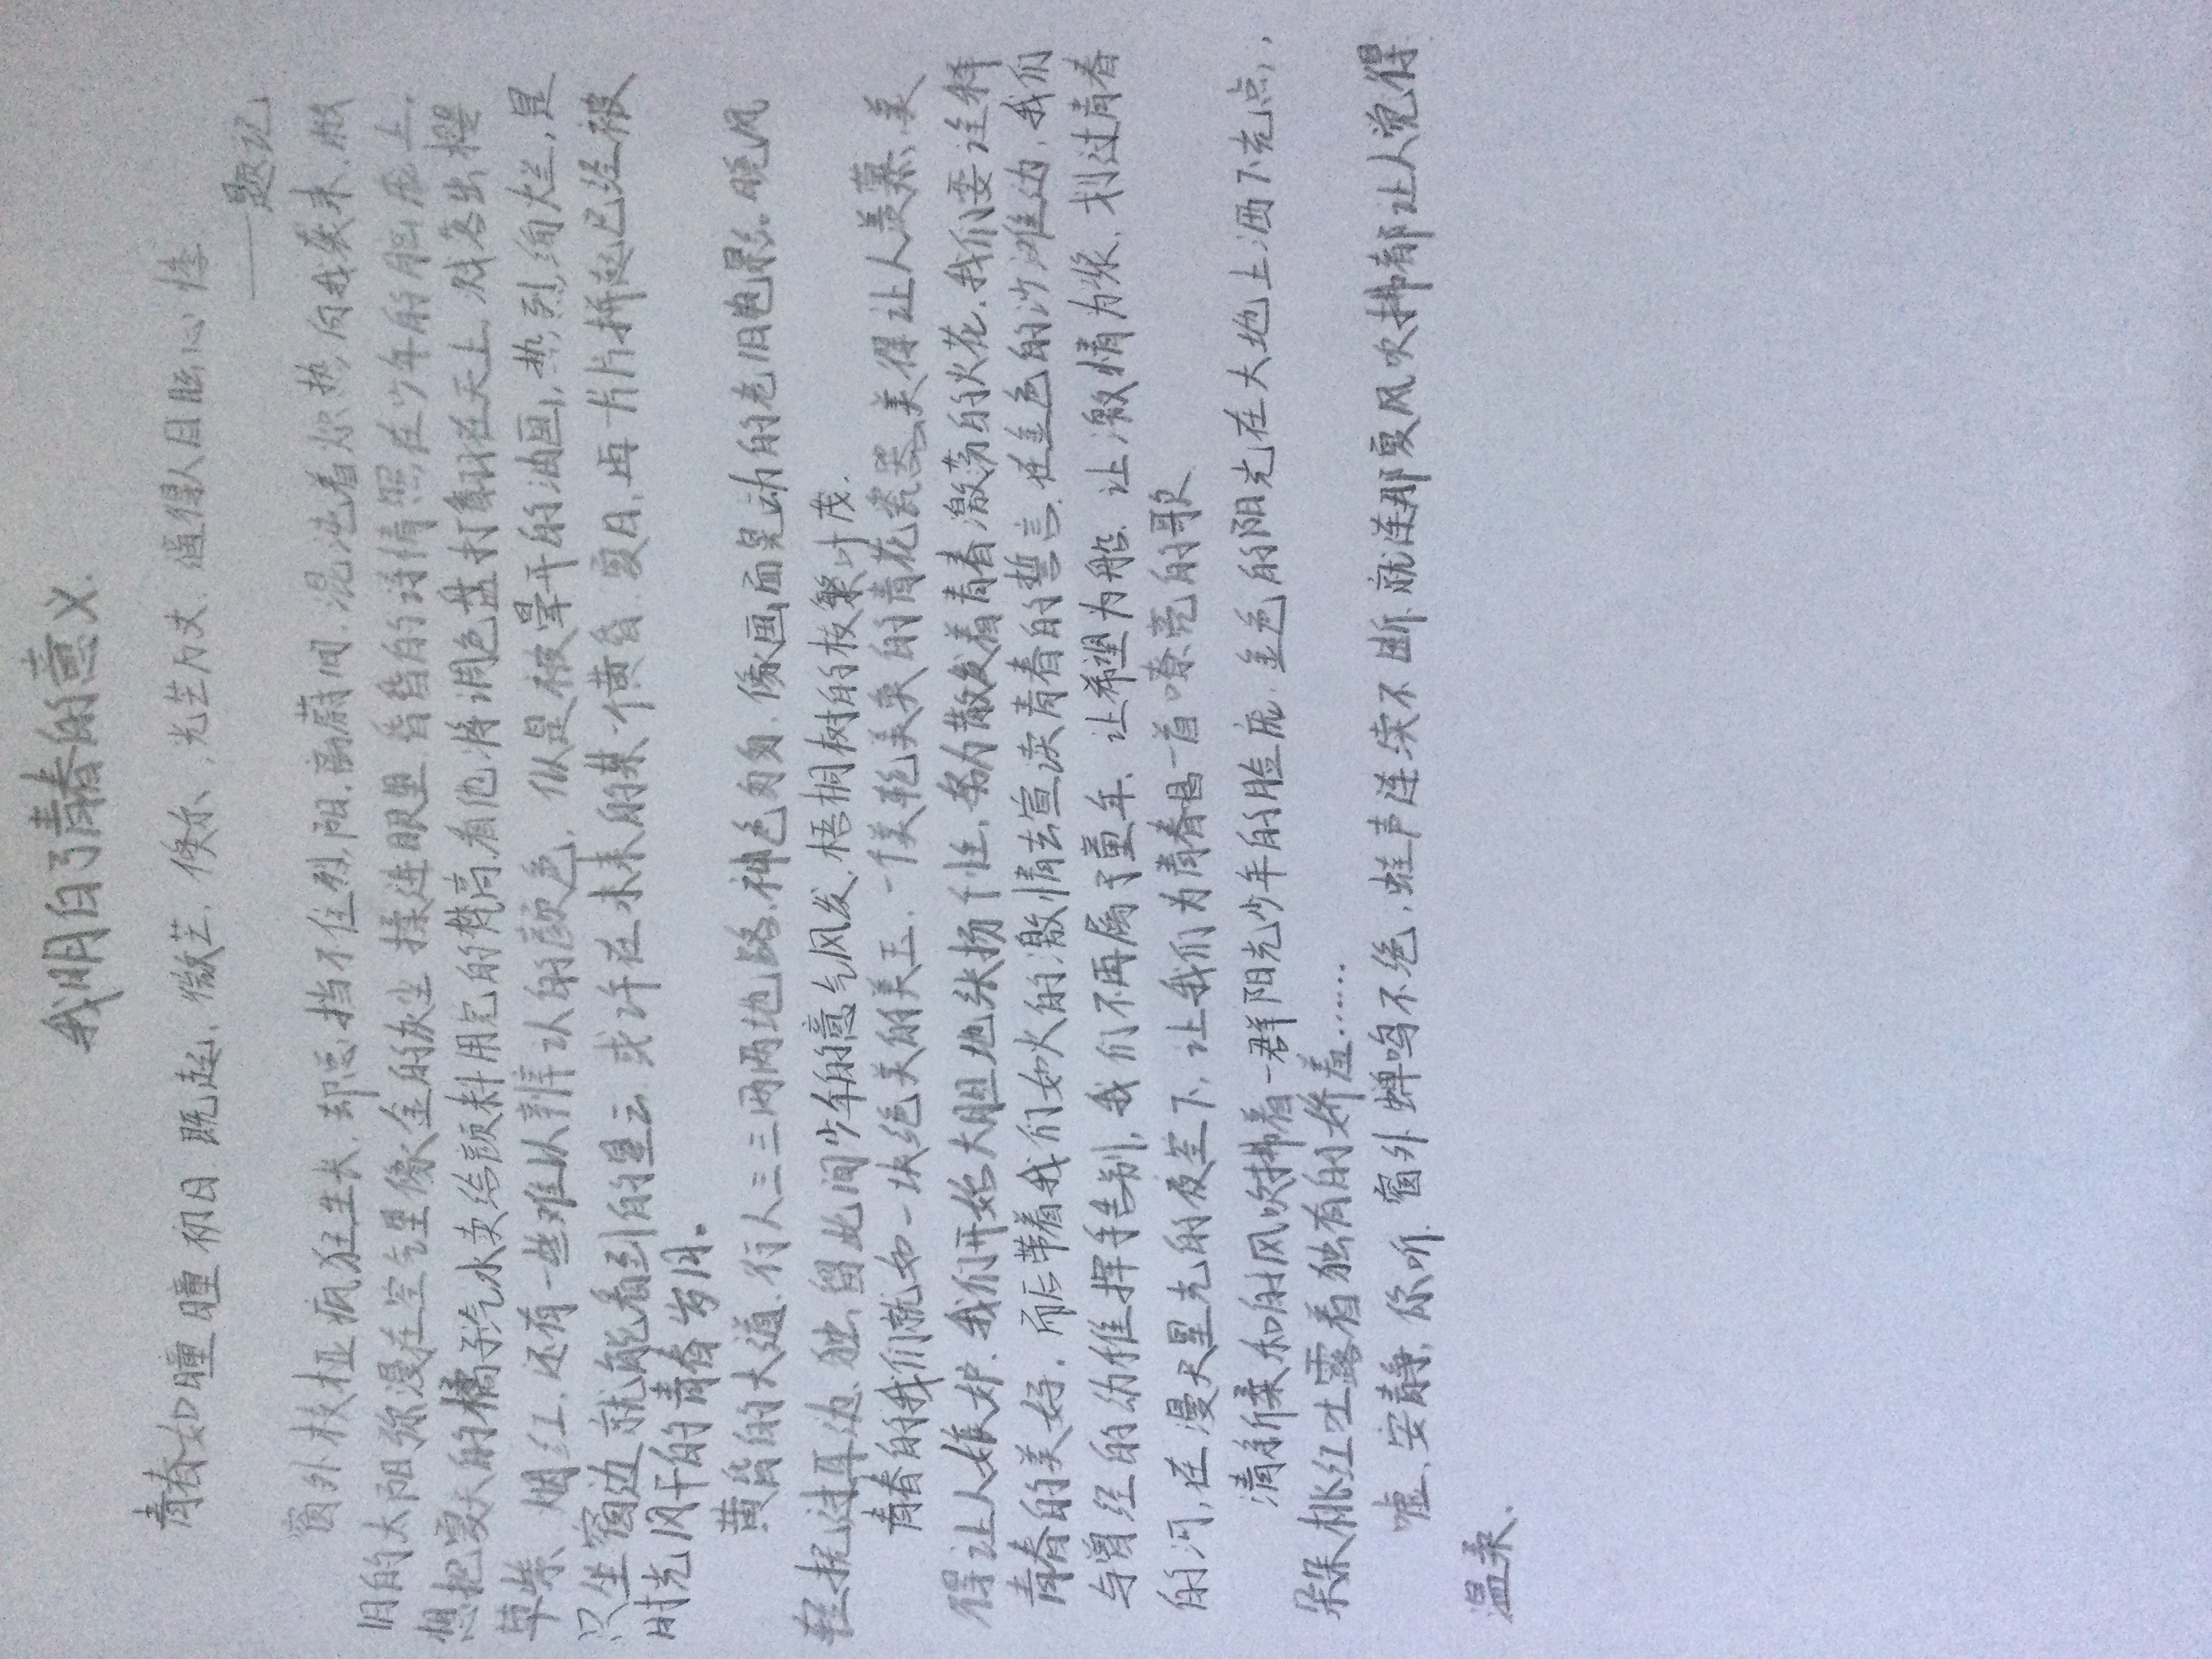 我明白了青春的意义.
青春如瞳瞳初日.既起,微芒,倏尔,光芒万丈.逼得人目眩心怯
——题记
窗外枝桠疯狂生长,却总挡不住烈阳.蓊蔚间.混沌着炽热,向我袭来.散
旧的太阳弥漫在空气里像金的灰尘 揉进眼里 昏昏的诗情照在少年的脸庞上.
想把夏天的橘子汽水卖给颜料用它的梵高.看他将调色盘打翻在天上.残洛出橙
草紫、烟红.还有一些难以辨认的颜色,似是被晕开的油画,热烈,绚烂,是
只坐窗边就能看到的星云.或许在未来的某个黄昏.夏日,再片片拆起已经被
时光风干的青春岁月。
黄昏的大道.行人三三两两地路.神色匆匆.像画面晃动的老旧电影.晚风
轻抚过耳边.独留此间少年的意气风发.梧桐树的枝繁叶茂.
青春的我们就如一块绝美的美玉.一侯轮美奂的青花瓷器.美得让人羡慕.美
得让人嫉妒.我们开始大胆地张扬个性,努力散发着青春激荡的火花.我们要诠释
青春的美好.而后带着我们如火的激情去宣读青春的誓言.在金色的沙滩边,我们
与曾经的幼稚挥手告别,我们不再属于童年.让希望为船.让激情为浆.划过青春
的河,在漫天星光的夜空下,让我们为青春唱一首嘹亮的歌
清新柔和的风吹拂着一群阳光少年的脸庞.金色的阳光在大地上洒下光点,
朵朵桃红吐露着独有的娇羞……
嘘.安静,你听.窗外蝉鸣不绝,蛙声连续不断.就连那夏风吹拂都让人觉得
温柔.